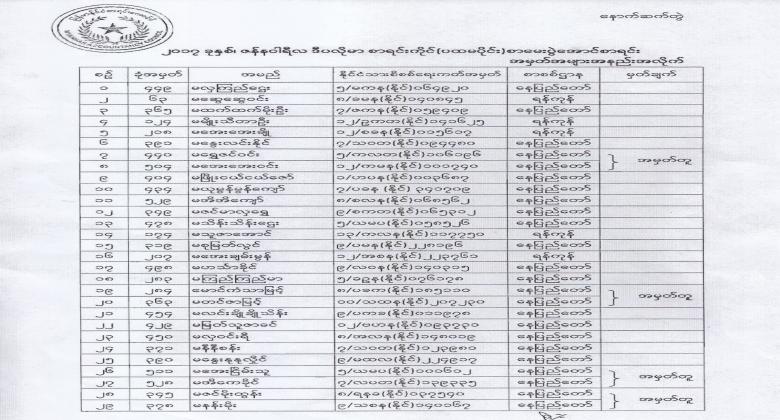 နောက်ဆက်တွဲ
၂၀၁၇ ခုနှစ်၊ ဇန်နဝါရီလ ဒီပလိုမာ စာရင်းကိုင်(ပထမပိုင်း)စာမေးပွဲအောင်စာရင်း
အမှတ်အများအနည်းအလိုက်
စဉ် ခုံအမှတ် အမည် နိုင်ငံသားစိစစ်ရေးကတ်အမှတ် စာစစ်ဌာန မှတ်ချက်
၁ ၄၄၉ မလှကြည်ဌေး ၅/မကန(နိုင်)၀၆၄၉၂၀ နေပြည်တော်
၂ ၆၃ မဆွေဆွေဝင်း ၈/ခမန(နိုင်)၁၄၀၈၄၅ ရန်ကုန်
၃ ၃၆၅ မထက်ထက်မိုးဦး ၇/ဇကန(နိုင်)၀၅၉၄၀၉ နေပြည်တော်
၄ ၁၂၄ မချိုးသီတာဦး ၁၂/ဥကတ(နိုင်)၁၄၁၆၂၅ ရန်ကုန်
၅ ၂၀၈ မအေးအေးချို ၁၂/စခန(နိုင်)၀၁၅၆၁၇ ရန်ကုန်
၆ ၃၉၁ မနွေးလင်းနိုင် ၇/သဝတ(နိုင်)၀၉၄၄၈၀ နေပြည်တော်
၇ ၄၄၀ မရွှေဇင်ဝင်း ၅/ကလတ(နိုင်)၁၀၆၁၉၆ နေပြည်တော်
အမှတ်တူ
၈ ၅၀၄ မအေးအေးဝင်း ၁၂/ကမန(နိုင်)၁၀၁၇၄၀ နေပြည်တော်
၉ ၄၀၄ မဖြိုးငယ်ငယ်ဇော် ၁/ဟပန(နိုင်)၀၀၃၆၈၇ နေပြည်တော်
၁၀ ၄၃၄ မယုမွန်မွန်ကျော် ၇/ပခန (နိုင်) ၃၄၁၇၀၉ နေပြည်တော်
၁၁ ၅၂၉ မအိအိကျော် ၈/စလန(နိုင်)၀၆၈၅၆၂ နေပြည်တော်
၁၂ ၃၄၉ မဇင်မာလှရွှေ ၉/စကတ(နိုင်)၀၆၅၃၁၂ နေပြည်တော်
၁၃ ၄၇၈ မသိန်းသိန်းဌေး ၅/ယမပ(နိုင်)၀၅၈၅၂၆ နေပြည်တော်
၁၄ ၁၇၄ မသူဇာအောင် ၁၃/ကလန(နိုင်)၁၁၇၇၅၀ ရန်ကုန်
၁၅ ၃၁၉ မခုမြတ်လွင် ၉/ပမန(နိုင်)၂၂၈၁၉၆ နေပြည်တော်
၁၆ ၂၀၇ မအေးချမ်းမွန် ၁၂/အစန(နိုင်)၂၂၃၇၆၁ ရန်ကုန်
၁၇ ၄၉၈ မဟသာ်ခိုင် ၉/လဝန(နိုင်)၁၄၀၃၁၅ နေပြည်တော်
၁၈ ၂၈၃ မကြည်ကြည်မာ ၅/ခဥန(နိုင်)၀၇၆၁၇၈ နေပြည်တော်
၁၉ ၂၈၄ မောင်ကံသာမြင့် ၈/ပခက(နိုင်)၁၈၅၁၁၀ နေပြည်တော်
အမှတ်တူ
၂၀ ၃၆၃ မတင်ဇာမြင့် ၁၀/သထန(နိုင်)၂၀၇၂၃၀ နေပြည်တော်
၂၁ ၄၅၄ မလင်းချိုချိုသိန်း ၉/ပကခ(နိုင်)၀၁၁၉၇၈ နေပြည်တော်
၂၂ ၄၂၉ မမြတ်သူဇာခင် ၁၂/ဗဟန(နိုင်)၀၉၃၇၃၀ နေပြည်တော်
၂၃ ၄၅၀ မလှဝင်းရီ ၈/အလန(နိုင်)၁၄၈၀၁၉ နေပြည်တော်
၂၄ ၃၇၁ မနီနီစန်း ၇/သဝတ(နိုင်)၁၂၃၉၈၀ နေပြည်တော်
၂၅ ၃၉၀ မနွေးနုနုလှိုင် ၉/မထလ(နိုင်)၂၂၄၉၁၇ နေပြည်တော်
၂၆ ၅၁၁ မအေးငြိမ်းသူ ၅/ယမပ(နိုင်)၁၀၀၆၁၂ နေပြည်တော်
အမှတ်တူ
၂၇ ၅၂၈ မအိကေခိုင် ၇/လပတ(နိုင်)၁၃၉၃၃၅ နေပြည်တော်
၂၈ ၃၄၅ မဇင်မိုးထွန်း ၈/ရနခ(နိုင်)၀၃၇၅၄၀ နေပြည်တော်
အမှတ်တူ
၂၉ ၃၇၈ မနန်းမိုး ၉/သစန(နိုင်)၁၄၁၁၆၇ နေပြည်တော်